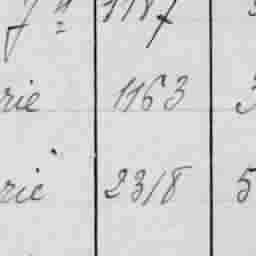 rie 1163 3
rie 2318 5